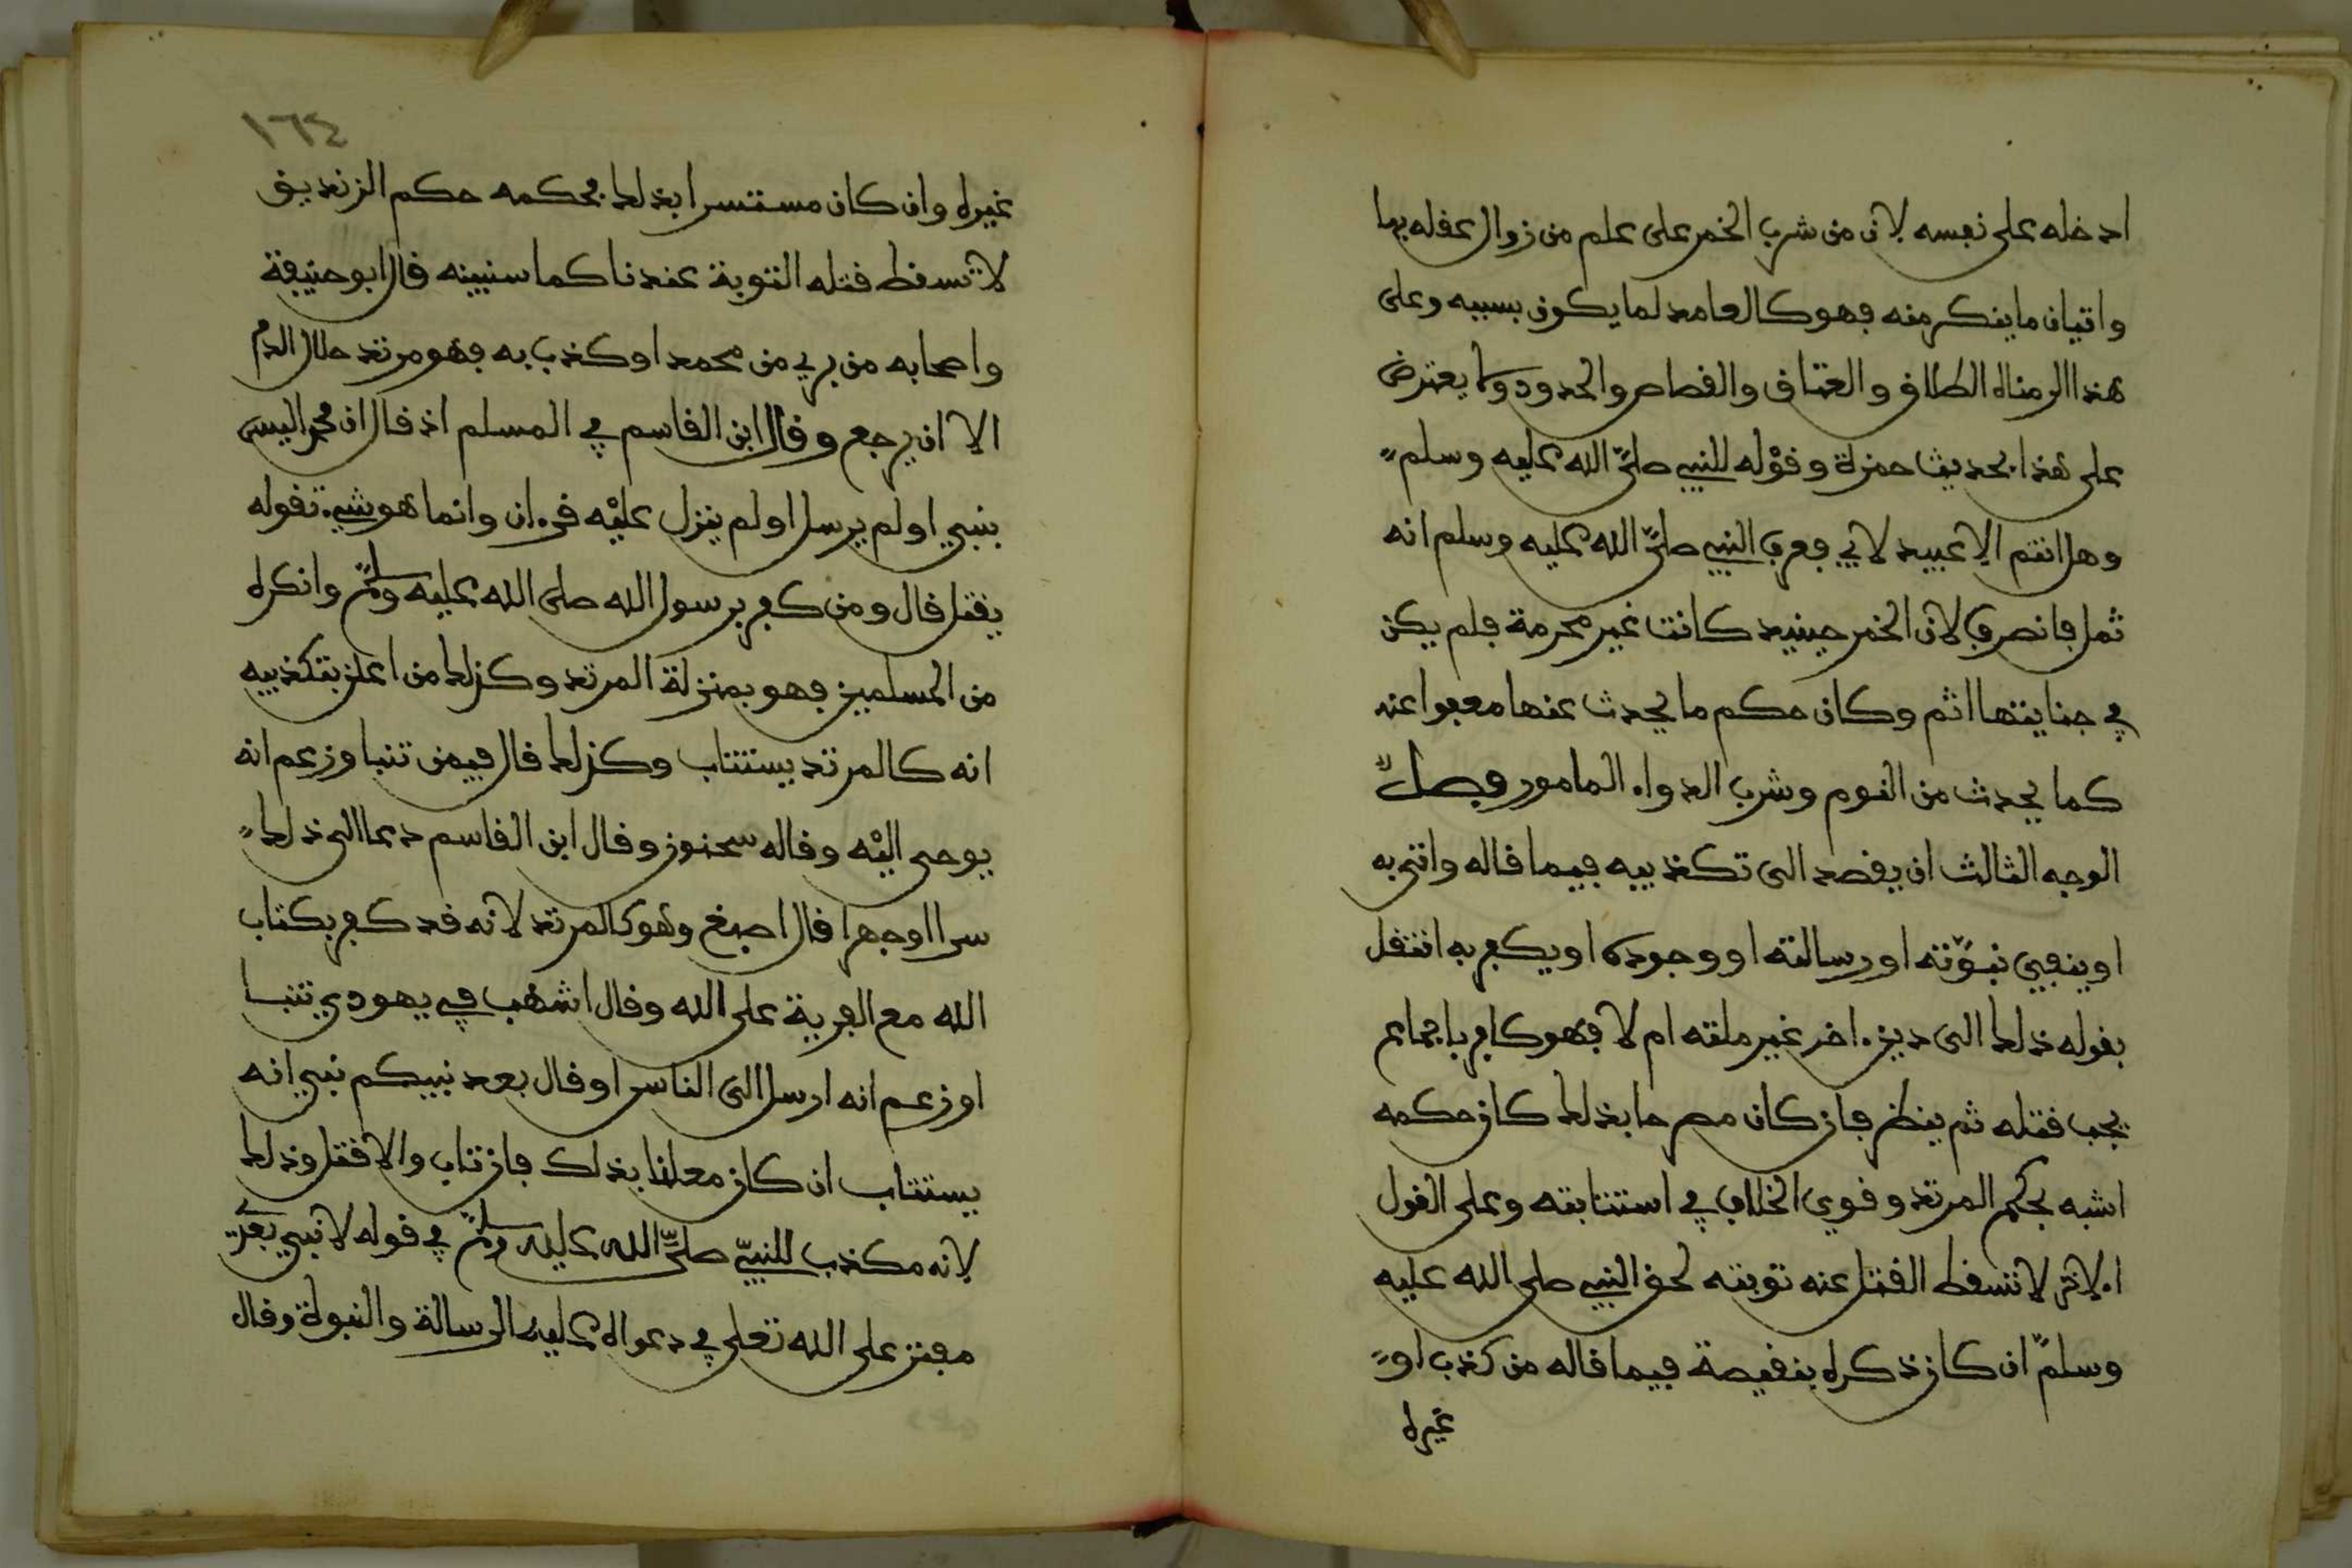 ادخله على نفسه لان من شرب الخمر على علم من زوال عقله بها
واتيان ما ينكر منه فهو كالعامد لما يكون بسببه وعلى
هذا الزمناه الطلاق والعتاق والقصاص والحدود ولا يعترض
على هذا بحديث حمزة وقوله للنبي صلى الله عليه وسلم
وهل انتم الا عبيد لابي فعرف النبي صلى الله عليه وسلم انه
ثمل فانصرف لان الخمر حينيد كانت غير محرمة فلم يكن
في جنايتها اثم وكان حكم ما يحدث عنها معفوا عنه
كما يحدث من النوم وشرب الدواء المامور فصل
الوجه الثالث ان يقصد الى تكذيبه فيما قاله واتى به
او ينفي نبوته او رسالته او وجوده او يكفر به انتقل
بقوله ذلك الى دين اخر غير ملته ام لا فهو كافر باجماع
يجب قتله ثم ينظر فان كان مصرحا بذلك كان حكمه
اشبه بحكم المرتد وقوي الخلاف في استتابته وعلى القول
الاخر لا تسقط القتل عنه توبته لحق النبي صلى الله عليه
وسلم ان كان ذكره بنقيصة فيما قاله من كذب او
غيره
١٦٤
غيره وان كان مستسرا بذلك فحكمه حكم الزنديق
لا تسقط قتله التوبة عندنا كما سنبينه قال ابو حنيفة
واصحابه من بري من محمد او كذب به فهو مرتد حلال الدم
الا ان يرجع وقال ابن القاسم في المسلم اذ قال ان محمدا ليس
بنبي او لم يرسل او لم ينزل عليه قرءان وانما هو شيء تقوله
يقتل قال ومن كفر برسول الله صلى الله عليه وسلم وانكره
من المسلمين فهو بمنزلة المرتد وكذلك من اعلن بتكذيبه
انه كالمرتد يستتاب وكذلك قال فيمن تنبا وزعم انه
يوحى اليه وقاله سحنون وقال ابن القاسم دعا الى ذلك
سرا او جهرا قال اصبغ وهو كالمرتد لانه قد كفر بكتاب
الله مع الفرية على الله وقال اشهب في يهودي تنبا
او زعم انه ارسل الى الناس او قال بعد نبيكم نبي انه
يستتاب ان كان معلنا بذلك فان تاب والا قتل وذلك
لانه مكذب للنبي صلى الله عليه وسلم في قوله لا نبي بعدي
مفتر على الله تعلى في دعواه عليه الرسالة والنبوة وقال